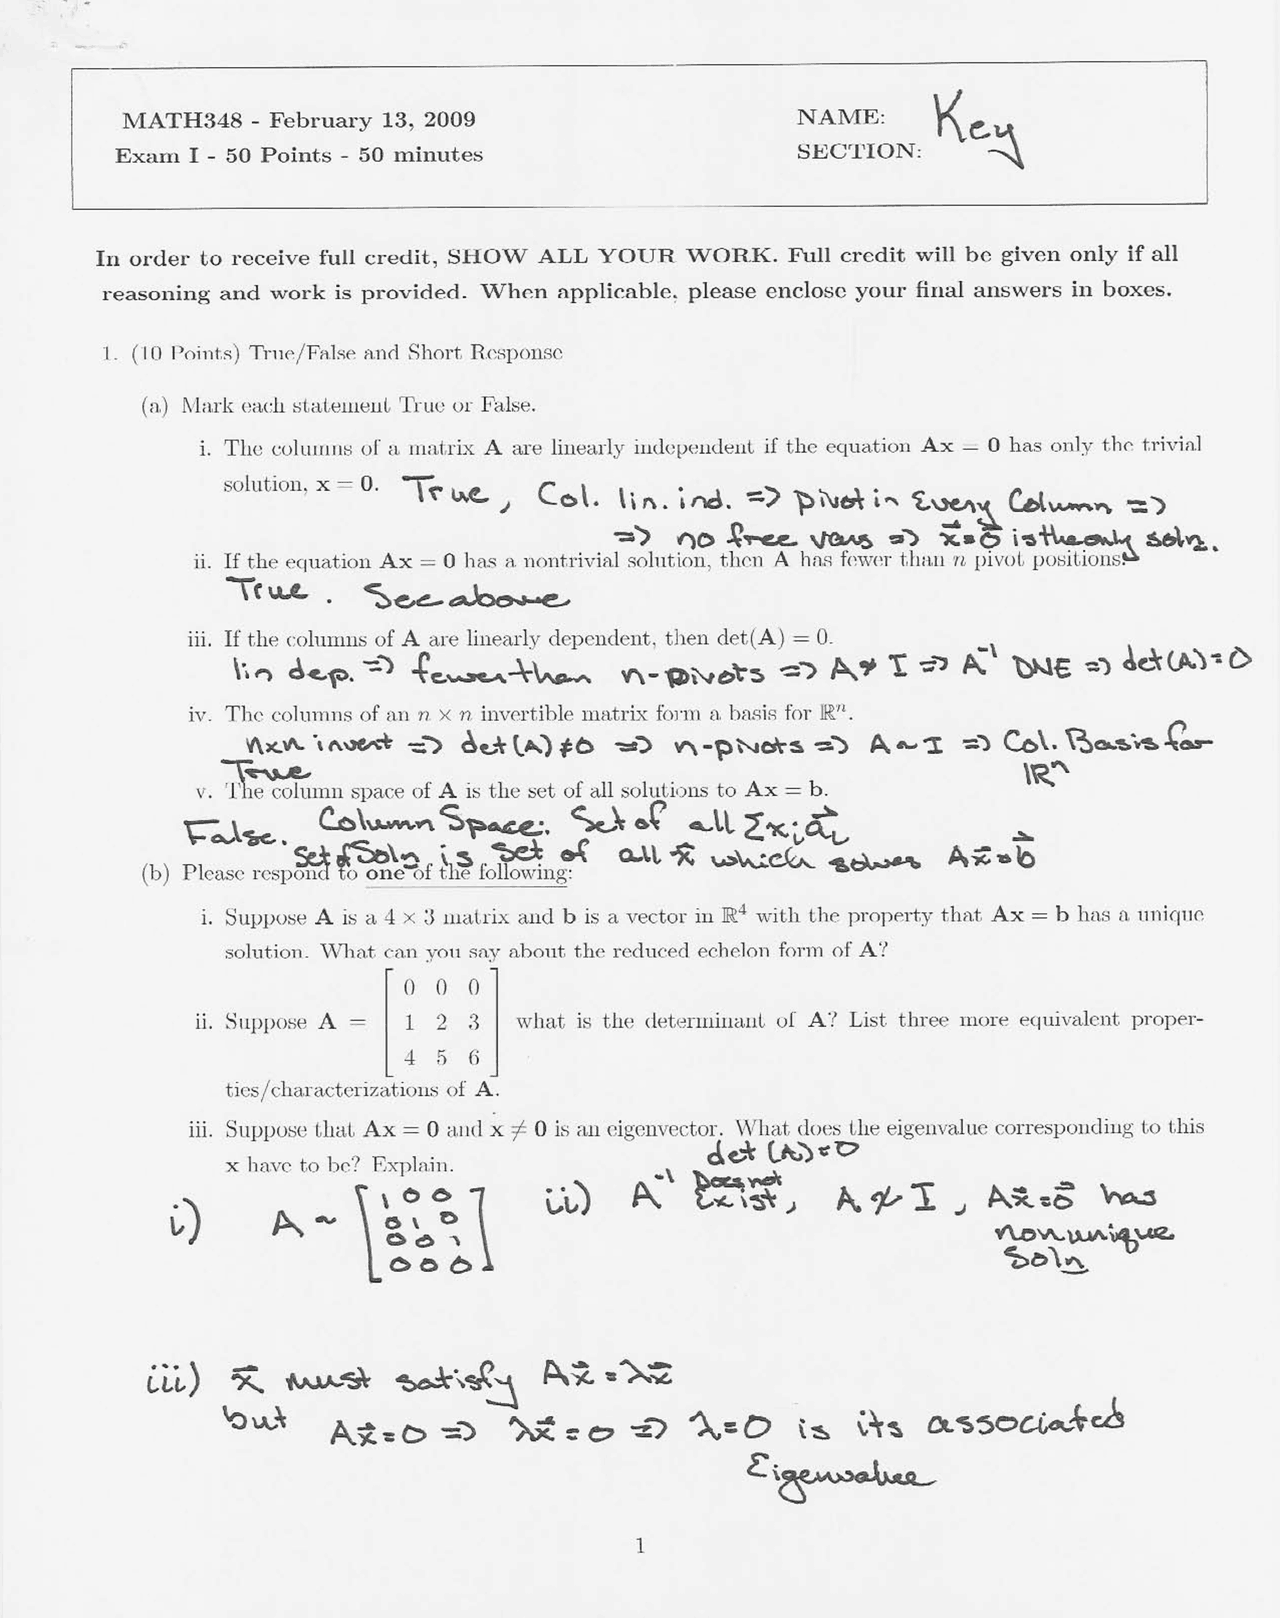 MATH348 - February 13, 2009
Exam I - 50 Points - 50 minutes
NAME: Key
SECTION:
In order to receive full credit, SHOW ALL YOUR WORK. Full credit will be given only if all
reasoning and work is provided. When applicable, please enclose your final answers in boxes.
1. (10 Points) True/False and Short Response
(a) Mark each statement True or False.
i. The columns of a matrix A are linearly independent if the equation Ax = 0 has only the trivial
solution, x = 0. True, Col. lin. ind. => pivot in Every Column =>
=> no free vars => x⃗=0⃗ is the only soln.
ii. If the equation Ax = 0 has a nontrivial solution, then A has fewer than n pivot positions.
True. See above
iii. If the columns of A are linearly dependent, then det(A) = 0.
lin dep. => fewer than n-pivots => A ≁ I => A⁻¹ DNE => det(A)=0
iv. The columns of an n × n invertible matrix form a basis for ℝⁿ.
nxn invert => det(A)≠0 => n-pivots => A~I => Col. Basis for
True ℝⁿ
v. The column space of A is the set of all solutions to Ax = b.
False. Column Space: Set of all Σxᵢa⃗ᵢ
Set of Soln is set of all x⃗ which solves Ax⃗=b⃗
(b) Please respond to one of the following:
i. Suppose A is a 4 × 3 matrix and b is a vector in ℝ⁴ with the property that Ax = b has a unique
solution. What can you say about the reduced echelon form of A?
0 0 0
ii. Suppose A = 1 2 3 what is the determinant of A? List three more equivalent proper-
4 5 6
ties/characterizations of A.
iii. Suppose that Ax = 0 and x ≠ 0 is an eigenvector. What does the eigenvalue corresponding to this
x have to be? Explain.
i) A ~
1 0 0
0 1 0
0 0 1
0 0 0
det(A)=0
ii) A⁻¹ Does not Exist, A ≁ I, Ax⃗=0⃗ has
nonunique
Soln
iii) x⃗ must satisfy Ax⃗=λx⃗
but Ax⃗=0 => λx⃗=0 => λ=0 is its associated
Eigenvalue
1